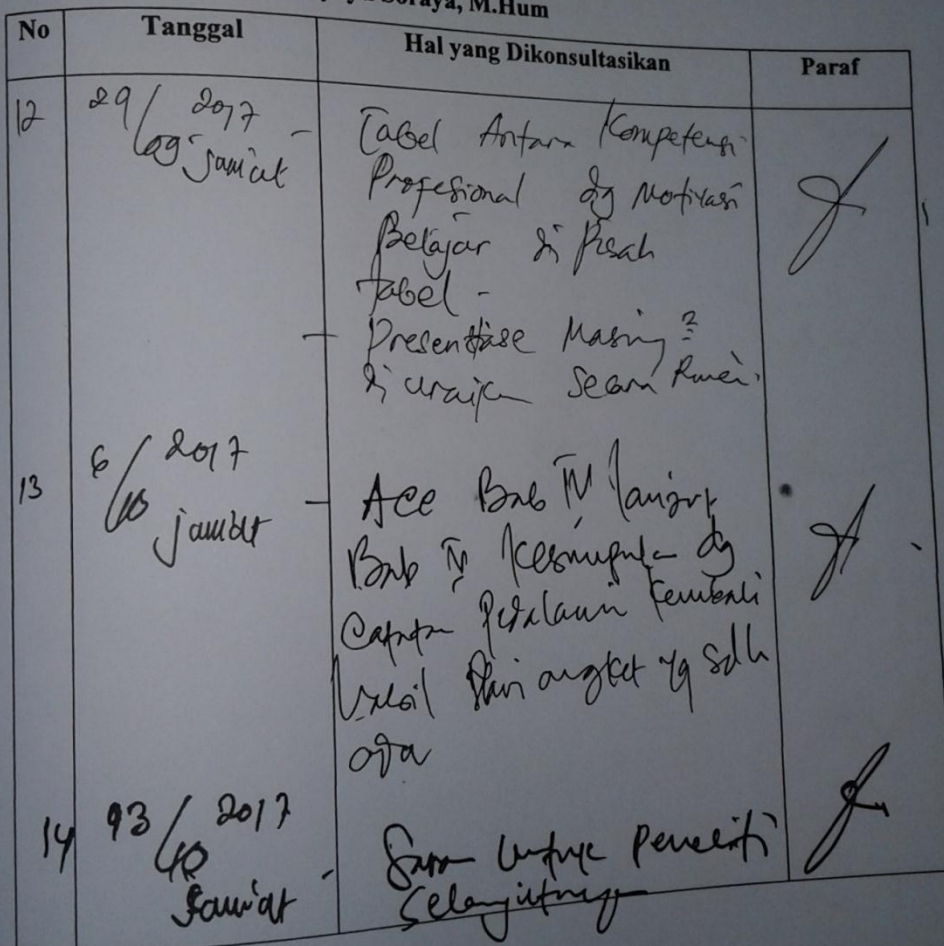 Soraya, M.Hum
No Tanggal Hal yang Dikonsultasikan Paraf
12 29/09 2017 Jum'at - Tabel Antara Kompetensi
Profesional dg Motivasi
Belajar di Pisah
tabel -
- Presentase Masing2
di uraikan Secara Rinci.
13 6/10 2017 jum'at - Acc Bab IV lanjut
Bab V Kesimpulan dg
Catatan Perdalam Kembali
hasil dari angket yg sdh
ada
14 13/10 2017 Jum'at - Saran Untuk Peneliti
Selanjutnya